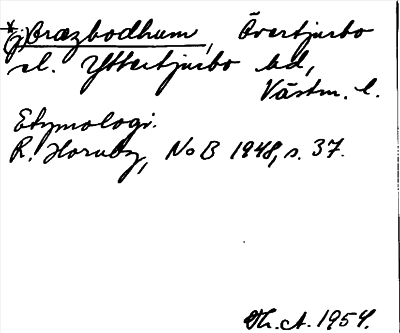 *(j)Orazbodhum, Övertjurbo
el. Yttertjurbo hd,
Västm. l.
Etymologi.
R. Hornby, NoB 1948, s. 37.
Th. A. 1954.